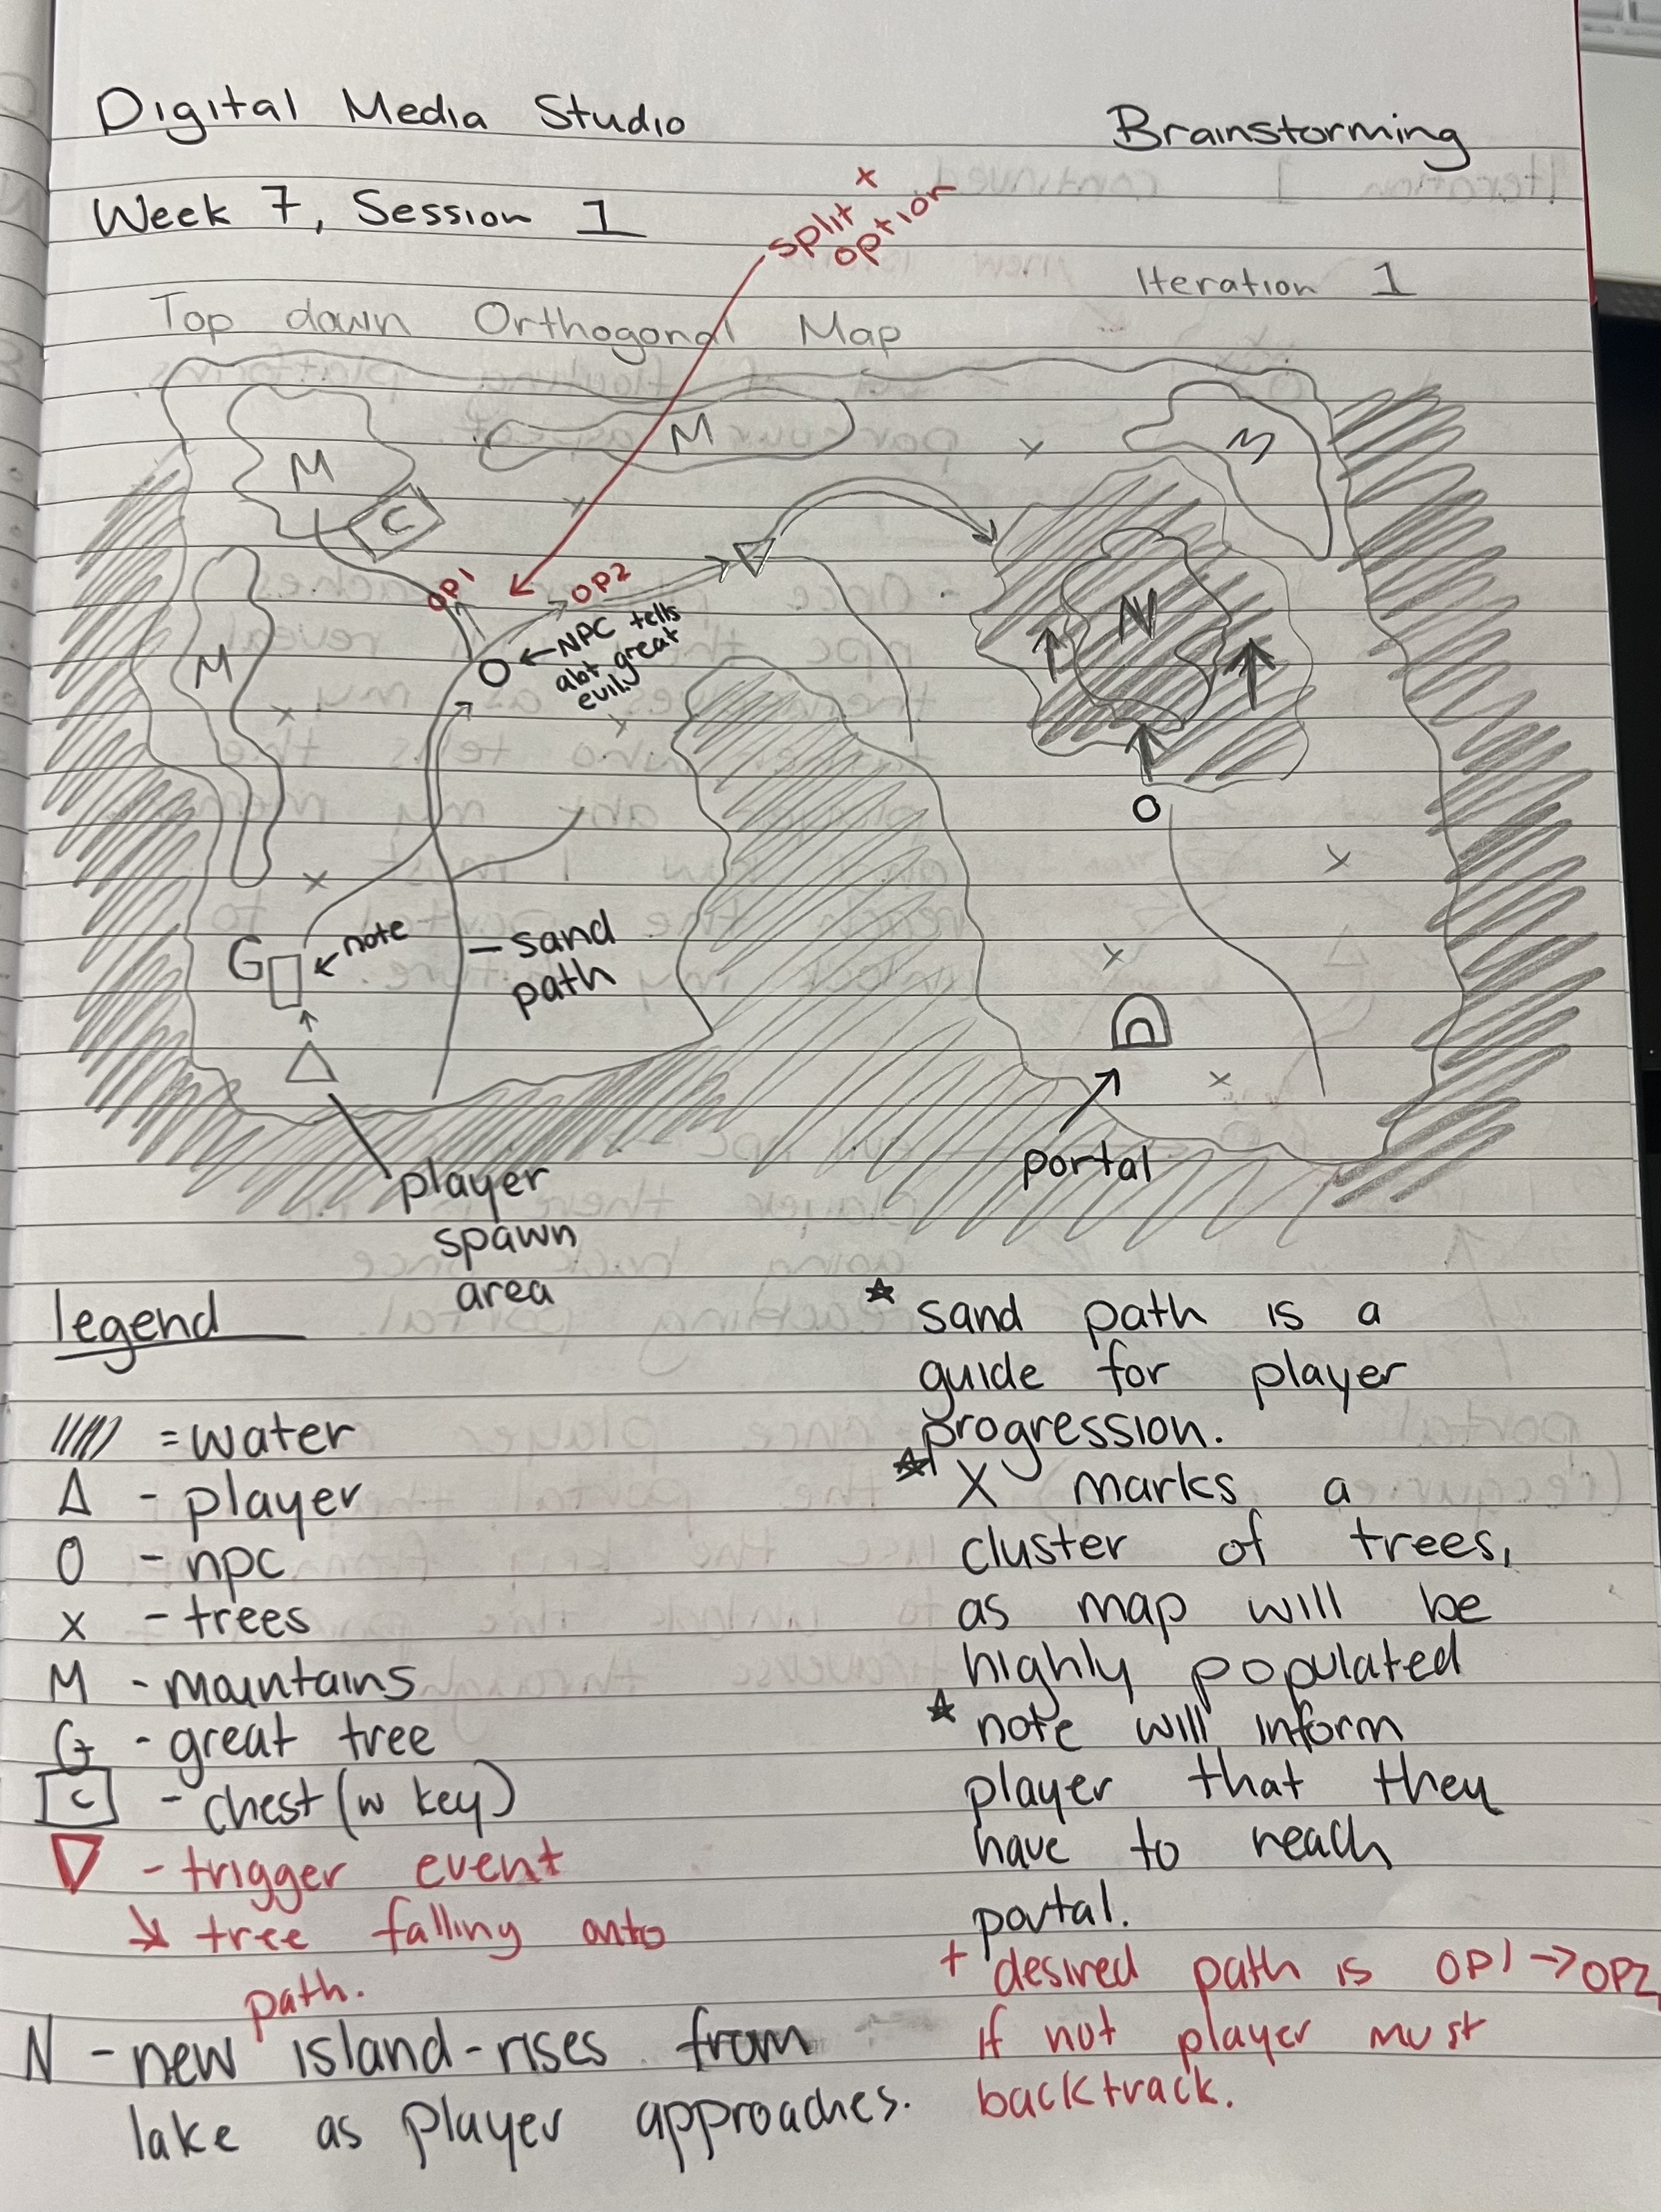 Digital Media Studio
Brainstorming
Week 7, Session 1
x
split
option
Iteration 1
Top down Orthogonal Map
M
M
M
C
M
OP1
OP2
NPC tells
abt great
evil.
N
G
note
- sand
path
player
spawn
area
portal
legend
= water
Δ - player
O - npc
x - trees
M - mountains
G - great tree
C - chest (w key)
▽ - trigger event
↘ tree falling onto
path.
N - new island - rises from
lake as player approaches.
* sand path is a
guide for player
progression.
* X marks a
cluster of trees,
as map will be
highly populated
* note will inform
player that they
have to reach
portal.
+ desired path is OP1 → OP2
if not player must
backtrack.